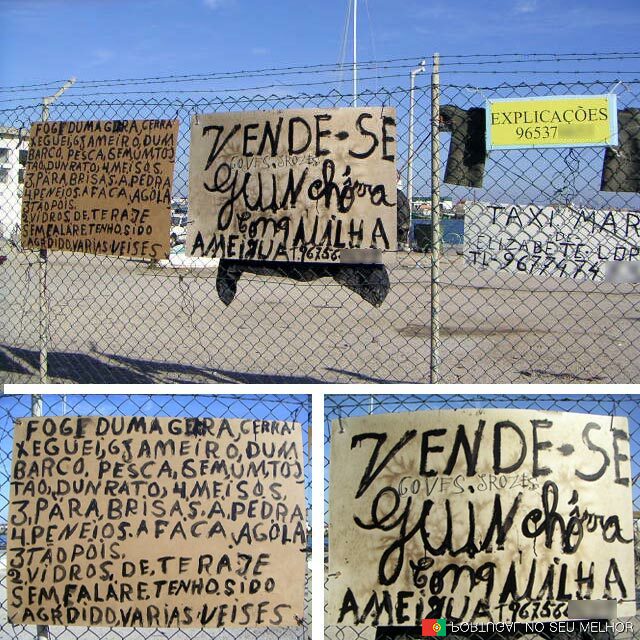 FOGE DUMA GERA, CERRA
XEGUEI, 6, JAMEIRO, DUM
BARCO, PESCA, SEM UMTOJ
TAO, DUN RATO, 4 MEISOS,
3, PARA, BRISAS. A, PEDRA
4, PENEIOS. A FACA, AGOLA
3 TAO POIS.
2 VIDROS, DE, TERAJE
SEM FALÁRE, TENHO, SIDO
AGRDIDO, VARIAS VEISES
VENDE-SE
GOVES. BROZES
GUINchórra
Cong NAILHA
AMEIGUA T 96756
EXPLICAÇÕES
96537
TAXI MAR
DE
ELIZABETE LOP
TL-9677474
FOGE DUMA GERA, CERRA
XEGUEI, 6, JAMEIRO, DUM
BARCO, PESCA, SEM UMTOJ
TAO, DUN RATO, 4 MEISOS,
3, PARA, BRISAS. A, PEDRA
4, PENEIOS. A FACA, AGOLA
3 TAO POIS.
2 VIDROS, DE, TERAJE
SEM FALÁRE, TENHO, SIDO
AGRDIDO, VARIAS VEISES
VENDE-SE
GOVES. BROZES
GUINchórra
Cong NAILHA
AMEIGUA T 96756
PORTUGAL NO SEU MELHOR